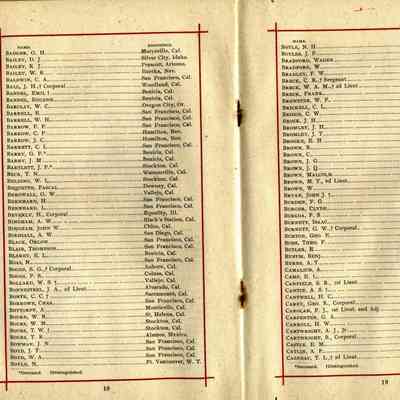 NAME. RESIDENCE.
BADGER, G. H. Marysville, Cal.
BAILEY, D. J. Silver City, Idaho.
BAILEY, E. J. Prescott, Arizona.
BAILEY, W. B. Eureka, Nev.
BALDWIN, C. A. San Francisco, Cal.
BALL, J. H.,† Corporal Woodland, Cal.
Benicia, Cal.
BANNEL, EUGENE Benicia, Cal.
BARCLAY, W. C. Oregon City, Or.
BARRELL, E. San Francisco, Cal.
BARRELL, W. H. San Francisco, Cal.
BARROW, F. P. San Francisco, Cal.
BARROW, C. P. Hamilton, Nev.
BARROW, J. C. Hamilton, Nev.
BARRETT, C. I. San Francisco, Cal.
BARRY, G. P.* Benicia, Cal.
BARRY, J. M. Benicia, Cal.
BARTLETT, J. P.* Stockton, Cal.
BECK, T. N. Watsonville, Cal.
BELDING, W. L. Stockton, Cal.
PASCAL Downey, Cal.
G. W. Vallejo, Cal.
BERNHARD, H. San Francisco, Cal.
BERNHARD, L. San Francisco, Cal.
BEVERLY, H., Corporal Equality, Ill.
BINGHAM, A. W. Black's Station, Cal.
BINGHAM, JOHN W. Chico, Cal.
BIRDSALL, A. W. San Diego, Cal.
BLACK, ORLOW San Francisco, Cal.
BLAIR, THORNTON San Francisco, Cal.
BLAKEY, E. L. Benicia, Cal.
BOAS, N. San Francisco, Cal.
BOGGS, S. G.,† Corporal Auburn, Cal.
BOGGS, P. S. Colusa, Cal.
BOLLARD, W. S.† Vallejo, Cal.
J. A., 2d Lieut. Alvarado, Cal.
BONTE, C. C.† Sacramento, Cal.
BORROWE, CHAS. San Francisco, Cal.
P. Monticello, Cal.
BOURN, W. B. St. Helena, Cal.
BOURS, W. M. Stockton, Cal.
BOURS, T. W.† Stockton, Cal.
BOURS, T. R. Alamos, Mexico.
BOWMAN, J. N. San Francisco, Cal.
BOYD, J. T. San Francisco, Cal.
BOYD, W. A. San Francisco, Cal.
BOYLE, N. Ft. Vancouver, W. T.
*Deceased. †Distinguished.
18
NAME.
BOYLE, N. H.
BOYLES, J. F.
BRADFORD, WADER
BRADFORD, W.
BRADLEY, F. W.
BRICE, C. R.,† Sergeant
BRICE, W. A. M.,† 2d Lieut
BRICE, FRANK
BREWSTER, W. F.
BRICKELL, C. L.
BRIGGS, C. W.
BROCK, J. H.
BROMLEY, J. H.
BROMLEY, J. T.
BROOKE, E. H.
BROWN, R.
BROWN, C.
BROWN, J. G.
BROWN, J. Q.
BROWN, MALCOLM
BROWN, M. F., 2d Lieut.
BROWN, W.
BRYAN, JOHN J.†
BURDEN, F. G.
BURGER, CLYDE
BURLDA, P. S.
BURNETT, ISAAC
BURNETT, G. W.,† Corporal
BURTON, GEO. E.
BUSH, THEO. F.
BUTLER, E.
BENJ.
BYRNE, A. T.
CAMALICH, A.
CAMP, E. L.
CANFIELD, S. B., 1st Lieut
CANTUA, A. S.†
CANTWELL, H. C.
CAREY, GEO. R., Corporal
CAROLAN, F. J., 1st Lieut. and Adj
CARPENTER, G. L.
CARROLL, H. W.
CARTWRIGHT, A. J., Jr.
CARTWRIGHT, B., Corporal
CASTLE, E. M.
CATLIN, A. P.
T. L.,† 2d Lieut
*Deceased. †Distinguished.
19